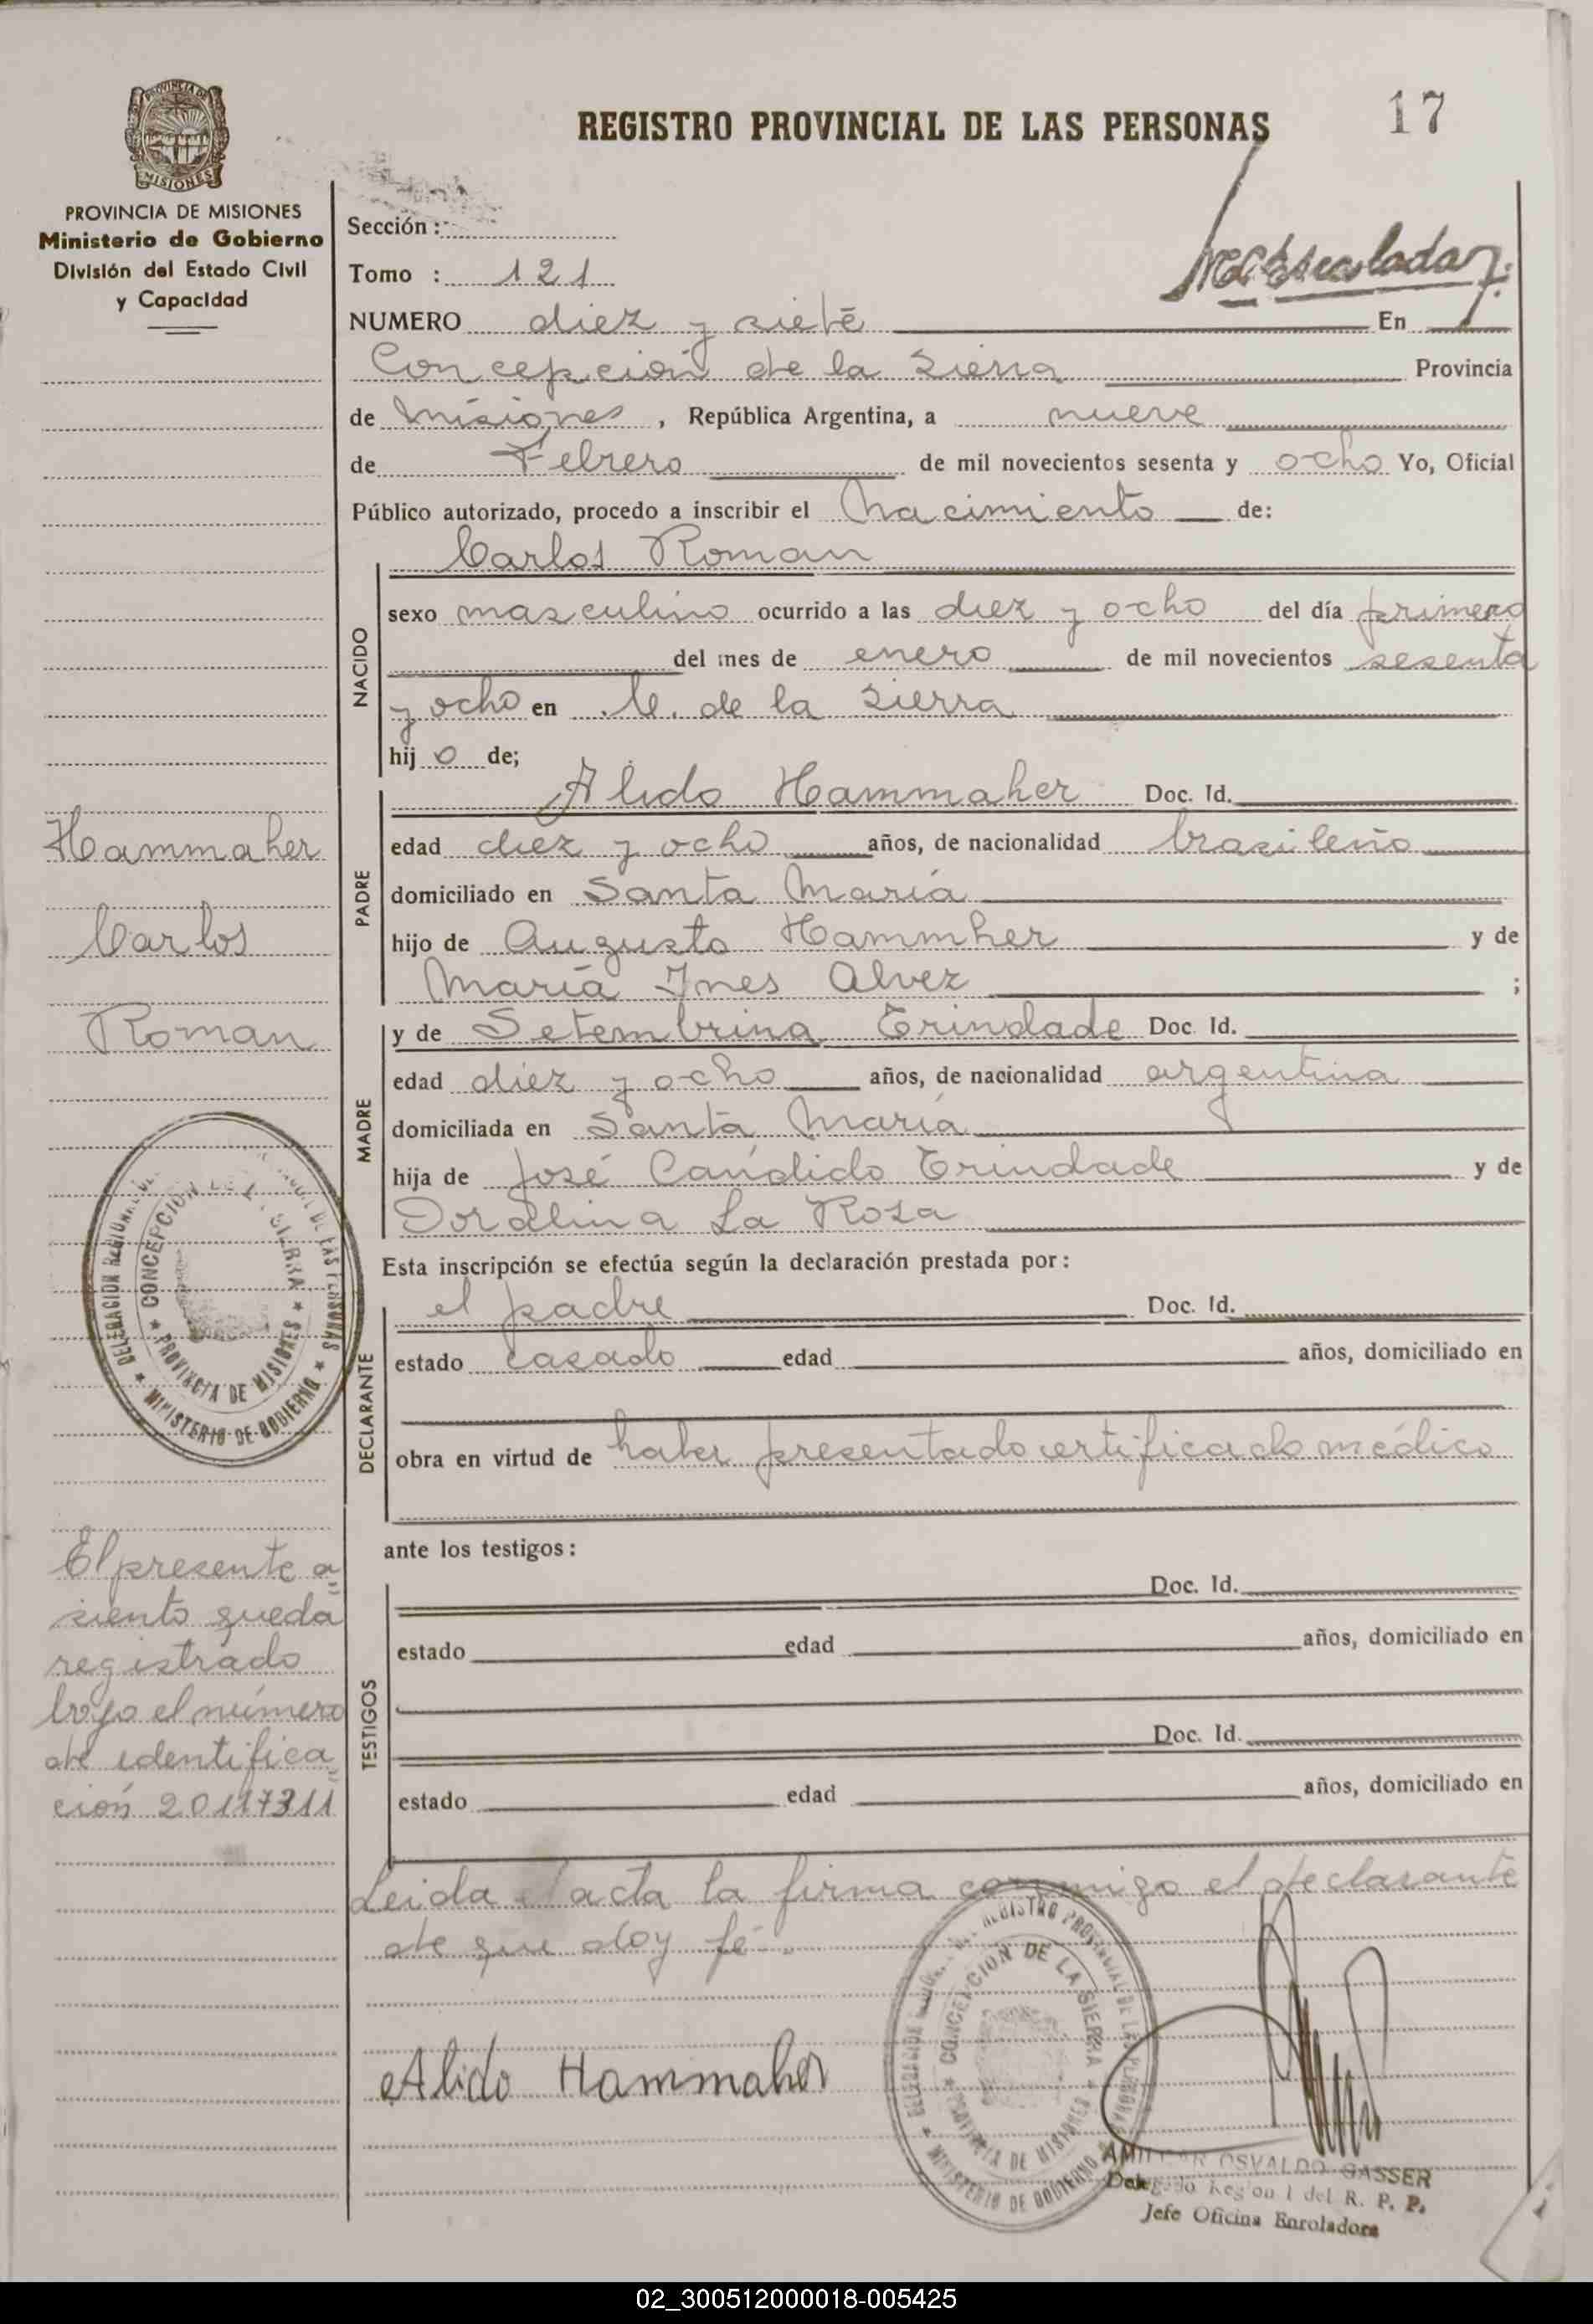 PROVINCIA DE
MISIONES
PROVINCIA DE MISIONES
Ministerio de Gobierno
División del Estado Civil
y Capacidad
REGISTRO PROVINCIAL DE LAS PERSONAS
17
Sección :
Tomo : 121
NUMERO diez y siete En
Concepción de la Sierra Provincia
de Misiones , República Argentina, a nueve
de Febrero de mil novecientos sesenta y ocho Yo, Oficial
Público autorizado, procedo a inscribir el Nacimiento de:
NACIDO
Carlos Roman
sexo masculino ocurrido a las diez y ocho del día primero
del mes de enero de mil novecientos sesenta
y ocho en C. de la Sierra
hij o de;
PADRE
Alido Hammaher Doc. Id.
edad diez y ocho años, de nacionalidad brasileño
domiciliado en Santa María
hijo de Augusto Hammher y de
María Ines Alvez ;
MADRE
y de Setembrina Trindade Doc. Id.
edad diez y ocho años, de nacionalidad argentina
domiciliada en Santa María
hija de José Candido Trindade y de
Doralina La Rosa
Esta inscripción se efectúa según la declaración prestada por:
DECLARANTE
el padre Doc. Id.
estado casado edad años, domiciliado en
obra en virtud de haber presentado certificado médico
ante los testigos:
TESTIGOS
Doc. Id.
estado edad años, domiciliado en
Doc. Id.
estado edad años, domiciliado en
Leida el acta la firma conmigo el declarante
de que doy fé.
Alido Hammaher
Hammaher
Carlos
Roman
DELEGACION REGIONAL DE LAS PERSONAS
CONCEPCION DE LA SIERRA
PROVINCIA DE MISIONES
MINISTERIO DE GOBIERNO
El presente a=
siento queda
registrado
bajo el número
de identifica=
ción 20117311
REGISTRO PROVINCIAL DE LAS PERSONAS
CONCEPCION DE LA SIERRA
PROVINCIA DE MISIONES
MINISTERIO DE GOBIERNO
AMILCAR OSVALDO GASSER
Delegado Region I del R. P. P.
Jefe Oficina Enroladora
02_300512000018-005425